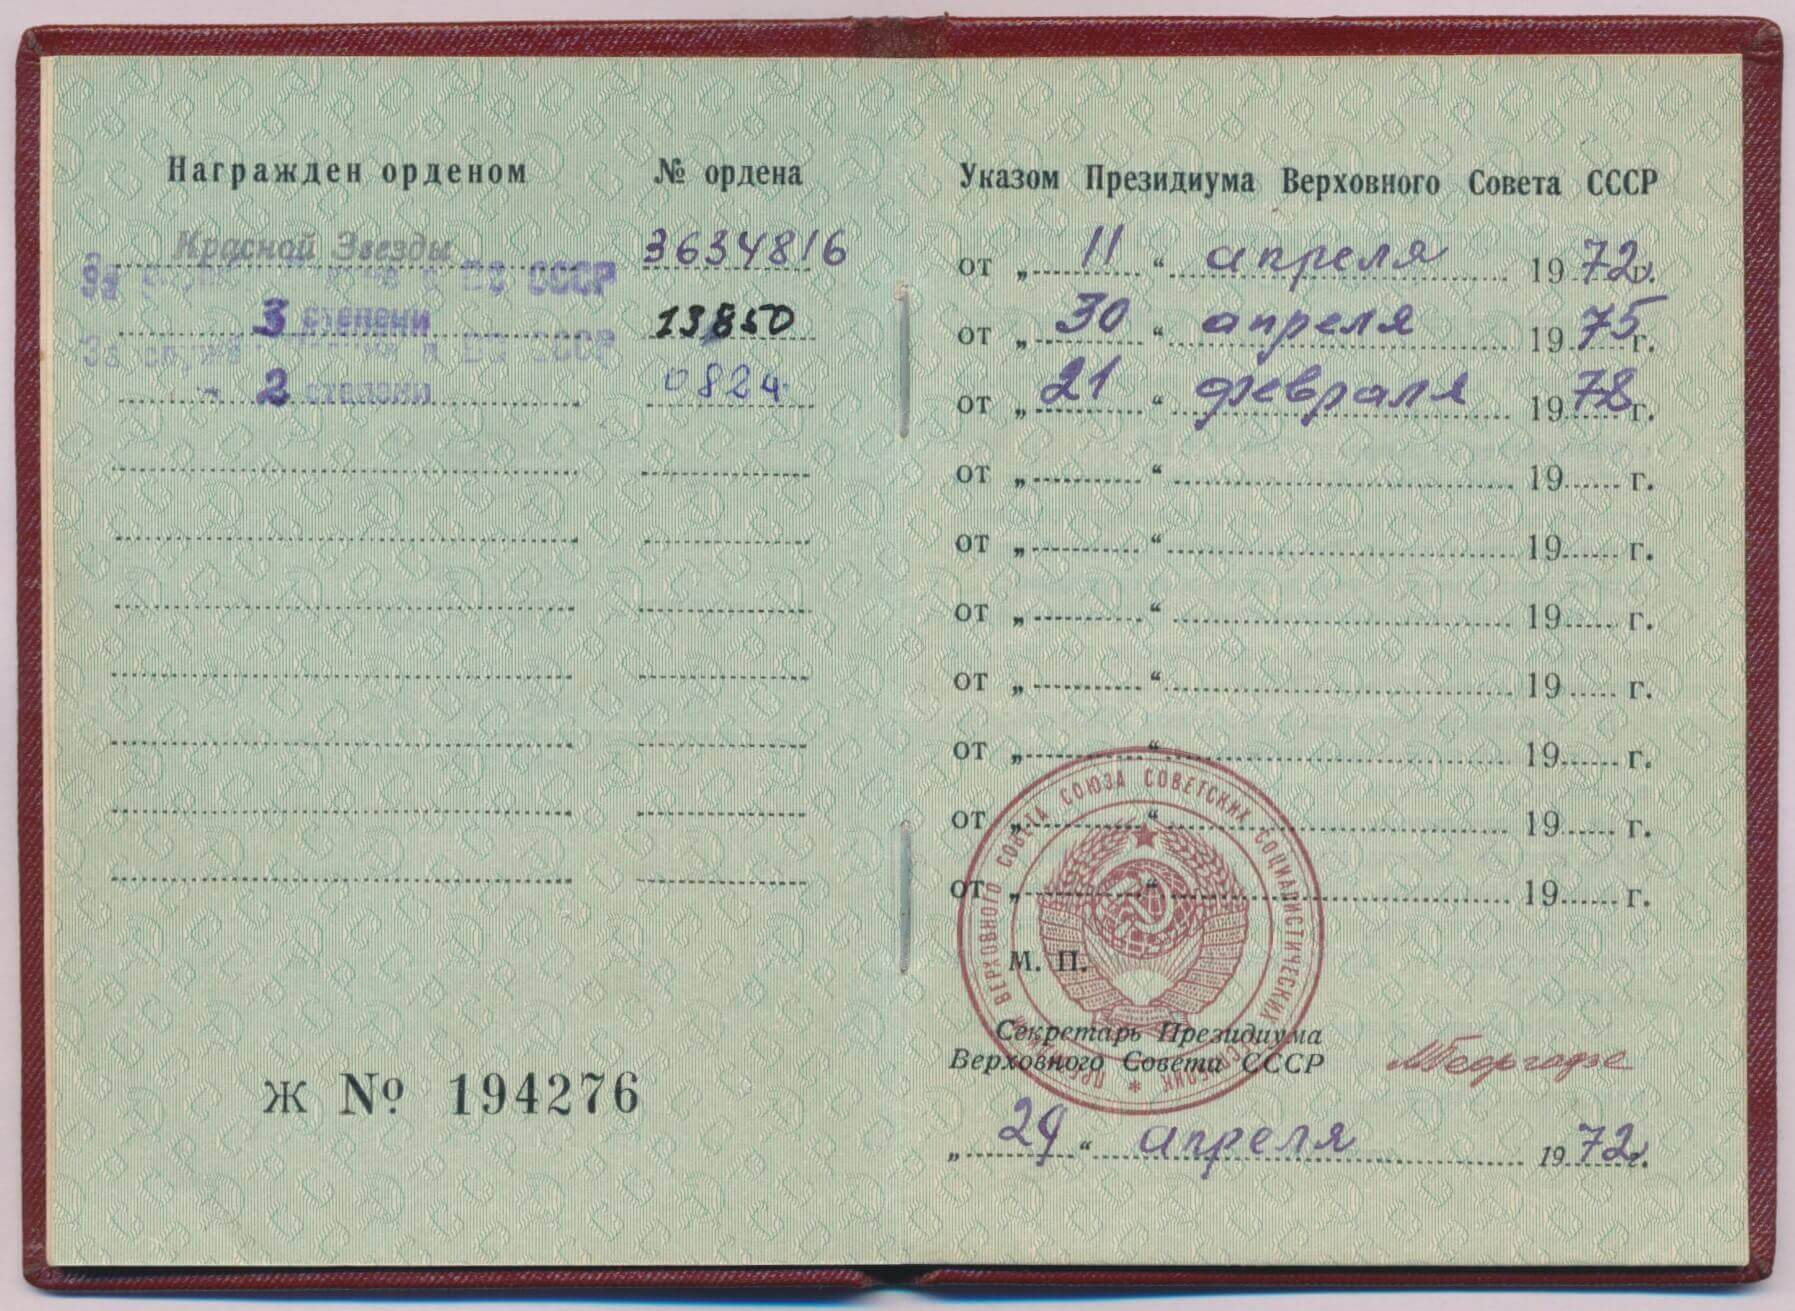 Награжден орденом № ордена
Красной Звезды 3634816
За службу Родине в ВС СССР
3 степени 13850
За службу Родине в ВС СССР
- 2 степени 0824
Ж № 194276
Указом Президиума Верховного Совета СССР
от „ 11 “ апреля 1972 г.
от „ 30 “ апреля 1975 г.
от „ 21 “ февраля 1978 г.
от „ “ 19 г.
от „ “ 19 г.
от „ “ 19 г.
от „ “ 19 г.
от „ “ 19 г.
от „ “ 19 г.
от „ “ 19 г.
ПРЕЗИДИУМ ВЕРХОВНОГО СОВЕТА СОЮЗА СОВЕТСКИХ СОЦИАЛИСТИЧЕСКИХ РЕСПУБЛИК *
М. П.
Секретарь Президиума
Верховного Совета СССР МГеоргадзе
„ 29 “ апреля 1972 г.